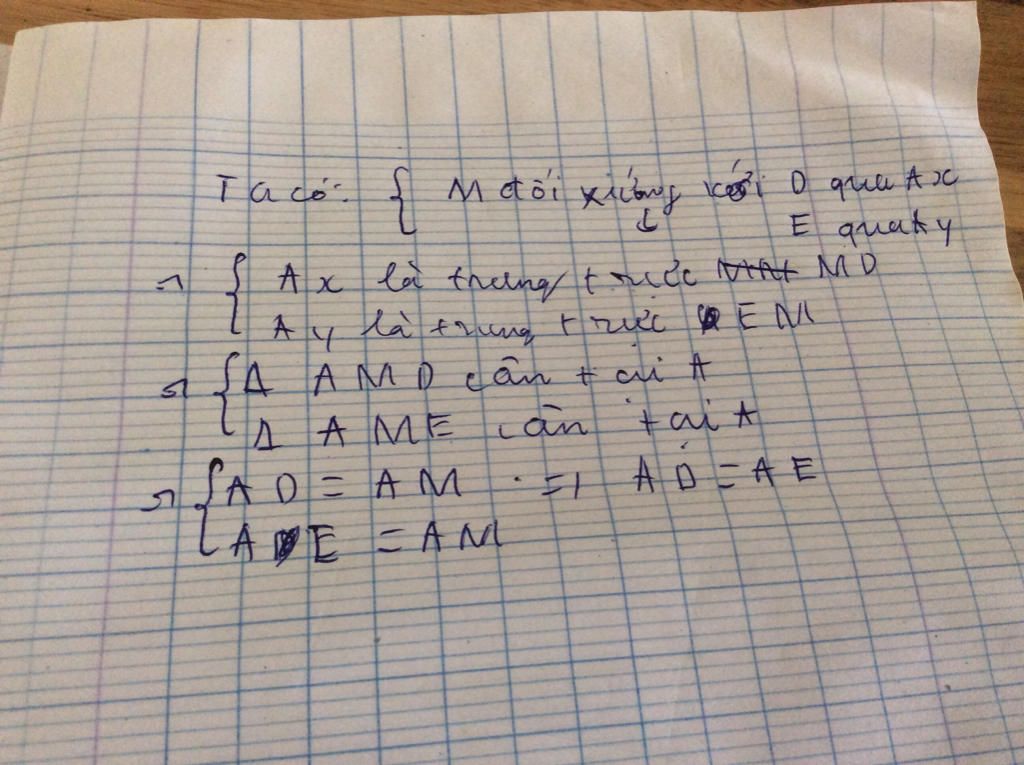 Ta có: { M đối xứng với D qua Ax
↓ E qua Ay
=> { Ax là trung trực MD
Ay là trung trực EM
=> { Δ AMD cân tại A
Δ AME cân tại A
=> { AD = AM . => AD = AE
AE = AM